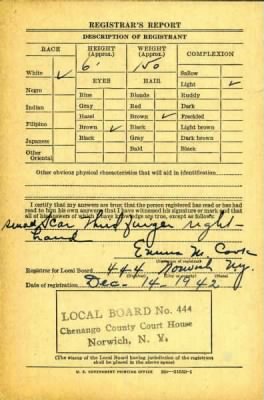 REGISTRAR'S REPORT
DESCRIPTION OF REGISTRANT
RACE HEIGHT (Approx.) WEIGHT (Approx.) COMPLEXION
6' 150
White ✓ Sallow
EYES HAIR Light ✓
Negro Blue Blonde Ruddy
Indian Gray Red Dark
Hazel Brown ✓ Freckled
Filipino Brown ✓ Black Light brown
Japanese Black Gray Dark brown
Other Oriental Bald Black
Other obvious physical characteristics that will aid in identification
I certify that my answers are true; that the person registered has read or has had
read to him his own answers; that I have witnessed his signature or mark and that
all of his answers of which I have knowledge are true, except as follows:
small scar third finger right
hand
Emma M. Cook
(Signature of registrar)
Registrar for Local Board 444 Norwich NY
(Number) (City or county) (State)
Date of registration Dec - 14 - 1942
LOCAL BOARD No. 444
Chenango County Court House
Norwich, N. Y.
(The stamp of the Local Board having jurisdiction of the registrant
shall be placed in the above space)
U. S. GOVERNMENT PRINTING OFFICE